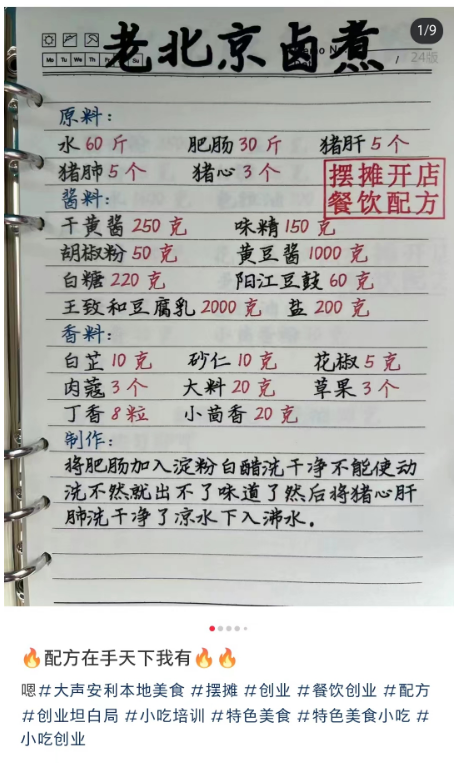 1/9
老北京卤煮
24版
Mo Tu We Th Fr Sa Su
原料：
水60斤 肥肠30斤 猪肝5个
猪肺5个 猪心3个
摆摊开店
餐饮配方
酱料：
干黄酱250克 味精150克
胡椒粉50克 黄豆酱1000克
白糖220克 阳江豆鼓60克
王致和豆腐乳2000克 盐200克
香料：
白芷10克 砂仁10克 花椒5克
肉蔻3个 大料20克 草果3个
丁香8粒 小茴香20克
制作：
将肥肠加入淀粉白醋洗干净不能使动
洗不然就出不了味道了然后将猪心肝
肺洗干净了凉水下入沸水.
🔥配方在手天下我有🔥🔥
嗯#大声安利本地美食 #摆摊 #创业 #餐饮创业 #配方
#创业坦白局 #小吃培训 #特色美食 #特色美食小吃 #
小吃创业